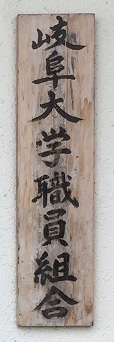 岐阜大学職員組合